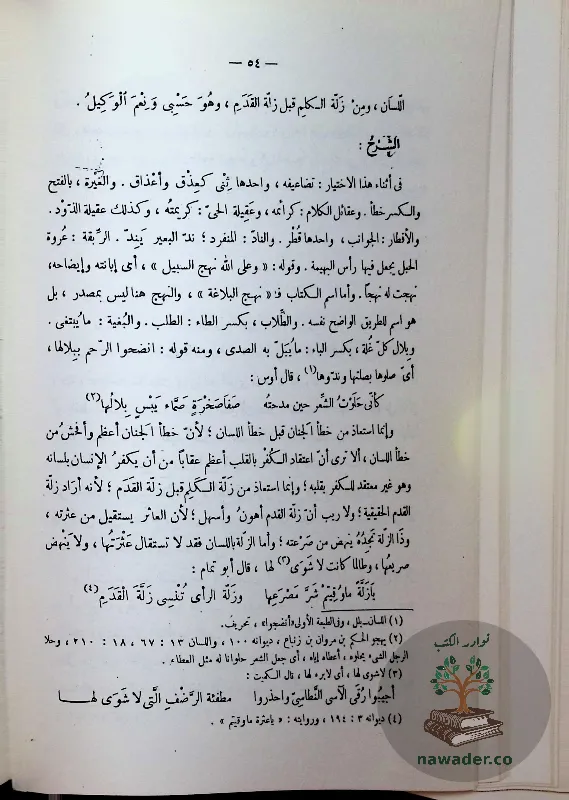 — ٥٤ —
اللّسان ، ومِنْ زَلّة السكلم قبل زلّة القَدَم ، وهُوَ حَسْبِي وَنِعْمَ ٱلْوَكِيلُ .
الشَّرْحُ :
فى أثناء هذا الاختيار : تضاعيفه ، واحدها ثِنْى كعِذْق وأعْذاق . والغَيْرة ، بالفتح
والكسر خطأ . وعقائل الكلام : كرائمه ، وعَقِيلة الحىّ : كريمتُه ، وكذلك عقيلة الذّود .
والأقطار : الجوانب ، واحدها قُطْر . والنادّ : المنفرد ؛ ندّ البعير يَنِدّ . الرِّبقة : عُروة
الحبل يجعل فيها رأس البهيمة . وقوله : « وعلى الله نهج السبيل » ، أى إبانته وإيضاحه ،
نهجت له نهجاً . وأما اسم الكتاب فـ « نهج البلاغة » ، والنهج هنا ليس بمصدر ، بل
هو اسم للطريق الواضح نفسه . والطِّلاب ، بكسر الطاء : الطلب . والبُغية : ما يُبتغى .
وبِلال كلّ غُلة ، بكسر الباء : ما يُبَلّ به الصدى ، ومنه قوله : انضحوا الرّحم ببِلالها ،
أىّ صلوها بصلتها وندّوها(١) ، قال أوس :
كأنّى حَلَوْتُ الشَّعر حين مدحتهُ صَفَا صَخْرَةٍ صَمَّاء يَبْسٍ بِلالُها(٢)
وإنما استعاذ من خطأ الجنان قبل خطأ اللسان ؛ لأنّ خطأ الجنان أعظم وأفحشُ من
خطأ اللسان ، ألا ترى أنّ اعتقاد الكُفْر بالقلب أعظم عقابا من أن يكفرُ الإنسان بلسانه
وهو غير معتقد للكفر بقلبه ؛ وإنما استعاذ من زَلّة الكَلِم قبل زلّة القدَم ؛ لأنه أراد زلّة
القدم الحقيقية ؛ ولا ريب أنّ زلّة القدم أهونُ وأسهل ؛ لأن العاثر يستقيل من عثرته ،
وذا الزلّة تجدُهُ ينهض من صَرْعته ؛ وأما الزلّة باللسان فقد لا تستقال عَثْرَتُها ، ولا يَنْهض
صريعُها ، وطالما كانت لا شَوَى(٣) لها ، قال أبو تمام :
يا زَلّةً ما وُقِيتُمْ شَرَّ مَصْرَعِها وزَلّة الرأى تُنْسِى زَلّةَ الْقَدَمِ(٤)
(١) اللسان ـ بلل ، وفى الطبعة الأولى «أنضجوا» ، تحريف .
(٢) يهجو الحكم بن مروان بن زنباع ، ديوانه ١٠٠ ، واللسان ١٣ : ٦٧ ، ١٨ : ٢١٠ ، وحلا
الرجل الشىء يحلوه ، أعطاه إياه ، أى جعل الشعر حلوانا له مثل العطاء .
(٣) لا شوى لها ، أى لا برء لها ، قال الكميت :
أجيبُوا رُقَى الآسى النِّطاسىّ واحذروا مطفئة الرَّضْفِ الّتى لا شَوَى لهـا
(٤) ديوانه ٣ : ١٩٤ ، وروايته : « يا عثرة ما وقيتم » .
نوادر الكتب
nawader.co